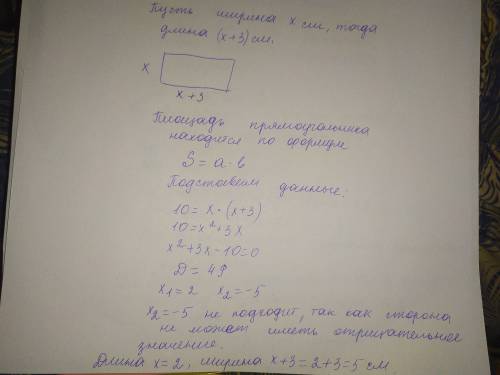 Пусть ширина x см, тогда
длина (x+3) см.
x
x+3
Площадь прямоугольника
находится по формуле
S = a · b
Подставим данные:
10 = x · (x+3)
10 = x² + 3x
x² + 3x - 10 = 0
D = 49
x₁ = 2 x₂ = -5
x₂ = -5 не подходит, так как сторона
не может иметь отрицательное
значение.
Длина x = 2, ширина x+3 = 2+3 = 5 см.